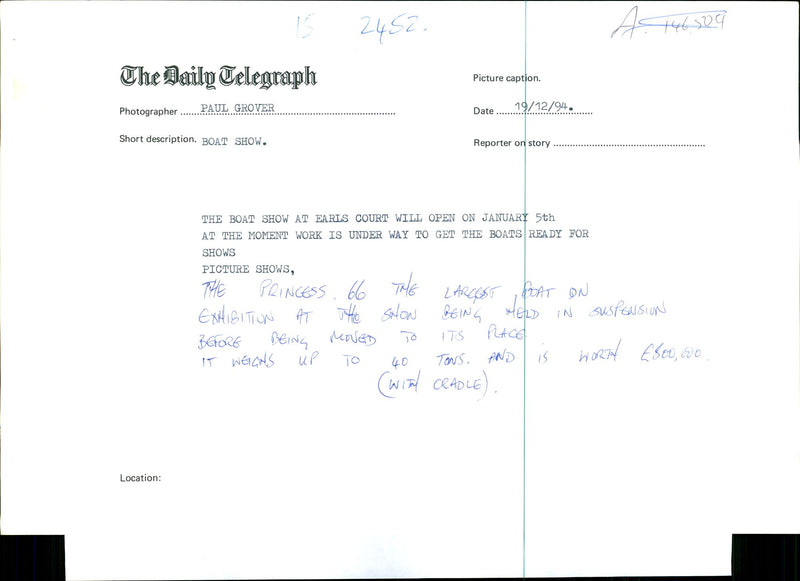 15 2452.
A. 146529
The Daily Telegraph
Picture caption.
Photographer PAUL GROVER
Date 19/12/94.
Short description. BOAT SHOW.
Reporter on story
THE BOAT SHOW AT EARLS COURT WILL OPEN ON JANUARY 5th
AT THE MOMENT WORK IS UNDER WAY TO GET THE BOATS READY FOR
SHOWS
PICTURE SHOWS,
THE PRINCESS. 66 THE LARGEST BOAT ON
EXHIBITION AT THE SHOW BEING HELD IN SUSPENSION
BEFORE BEING MOVED TO ITS PLACE
IT WEIGHS UP TO 40 TONS. AND IS WORTH £800,000.
(WITH CRADLE).
Location: